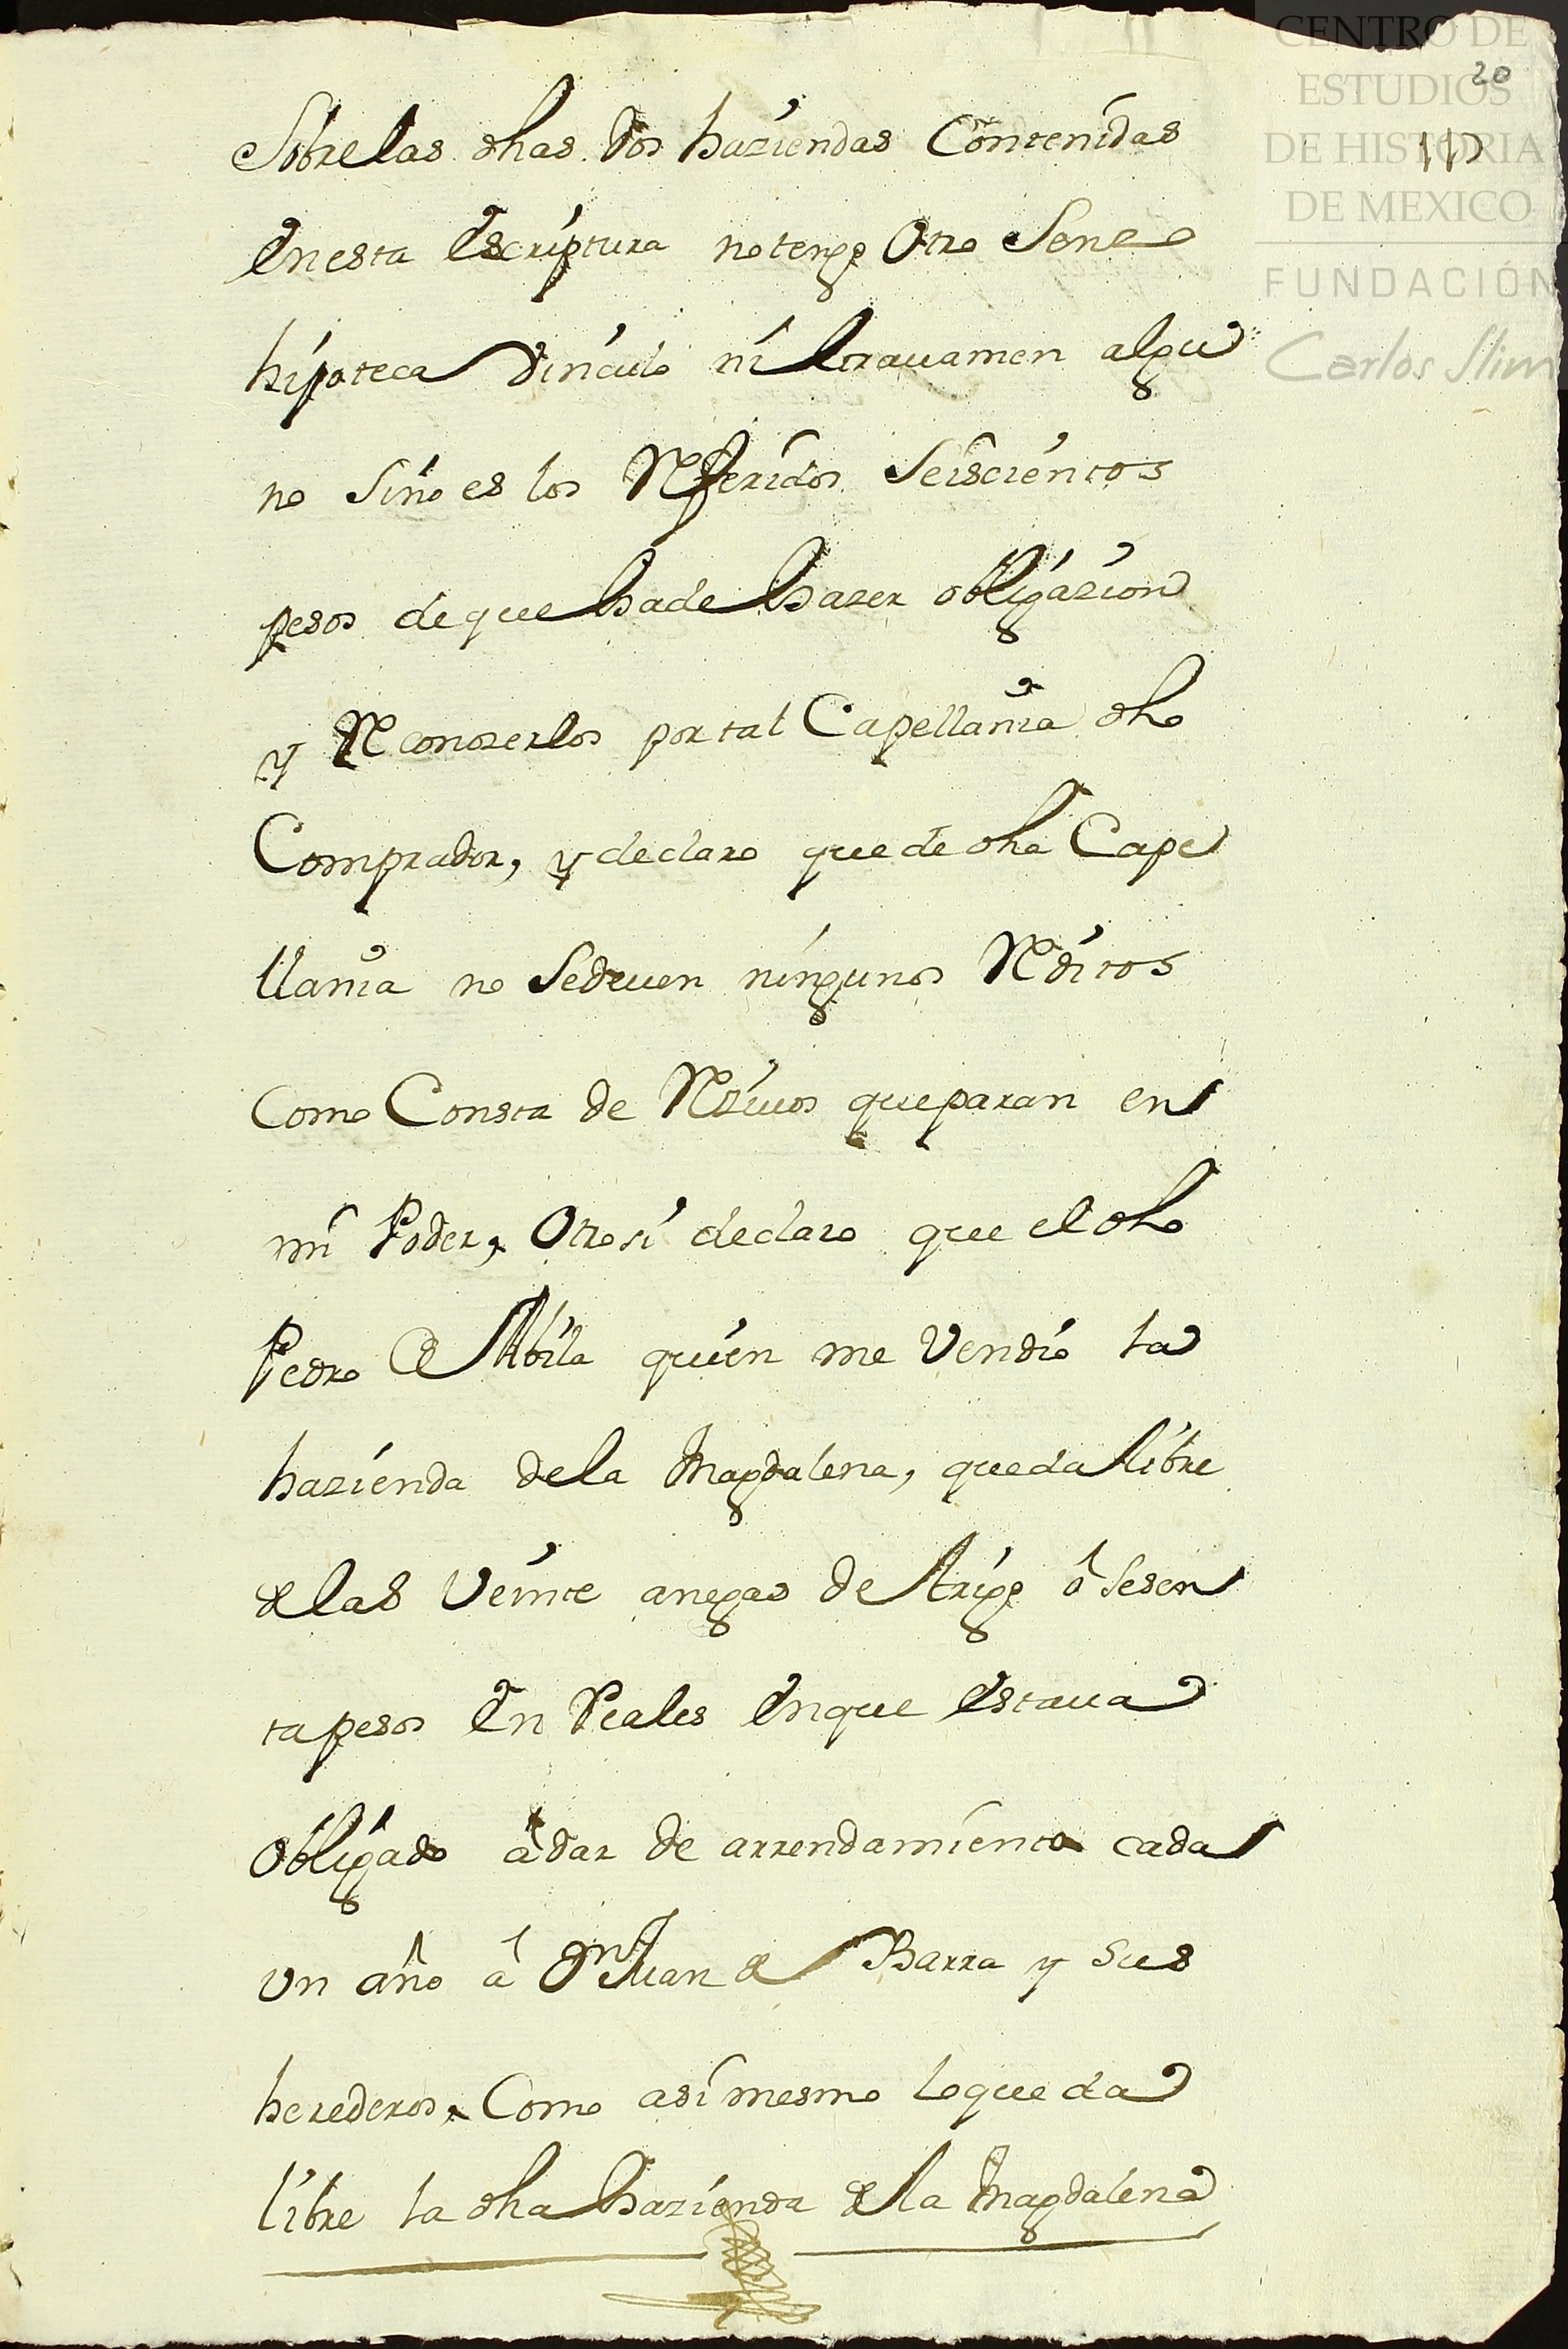 CENTRO DE
ESTUDIOS
DE HISTORIA
DE MEXICO
FUNDACIÓN
Carlos Slim
20
Sobre las dhas Dos haziendas Contenidas
En esta Escriptura no tengo Otro Senso
hipoteca Vinculo ni Grauamen algu
no Sino es los Referidos Seiscientos
pesos de que hade hazer obligazion
y Reconozerlos por tal Capellania dho
Comprador, y declaro que de dha Cape
llania no Sedeuen ningunos Reditos
Como Consta de Reziuos que paran en
mi Poder, Otro si declaro que el dho
Pedro de Abila quien me Vendio la
hazienda dela Magdalena, queda libre
de las Veinte anegas de trigo ó Sesen
ta pesos En Reales En que Estaua
Obligado á dar de arrendamiento cada
Un año á Dn Juan de Barra y Sus
herederos, Como asi mesmo lo queda
libre la dha hazienda de la Magdalena